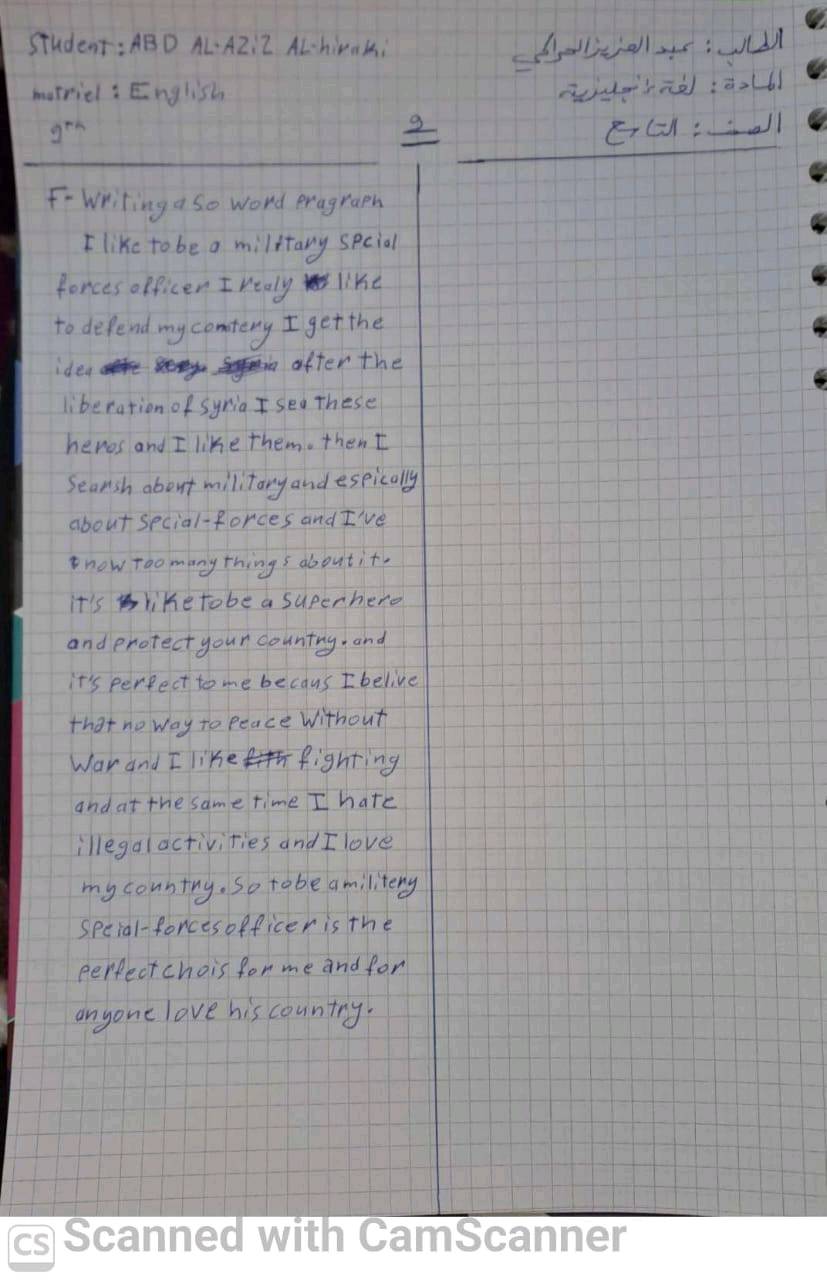 Student : ABD AL-AZiZ AL-hiraki
الطالب : عبد العزيز الحراكي
matriel : English
المادة : لغة إنجليزية
9th
2
الصف : التاسع
F- Writing a 50 word pragraph
I like to be a military spcial
forces officer I realy like
to defend my comtery I get the
idea after the
liberation of syria I sea these
heros and I like them. then I
Searsh about military and espically
about special-forces and I've
know too many things about it.
it's like to be a superhero
and protect your country. and
it's perfect to me becaus I belive
that no way to peace without
war and I like fighting
and at the same time I hate
illegal activities and I love
my country. So to be a militery
speial-forces officer is the
perfect chois for me and for
anyone love his country.
CS Scanned with CamScanner